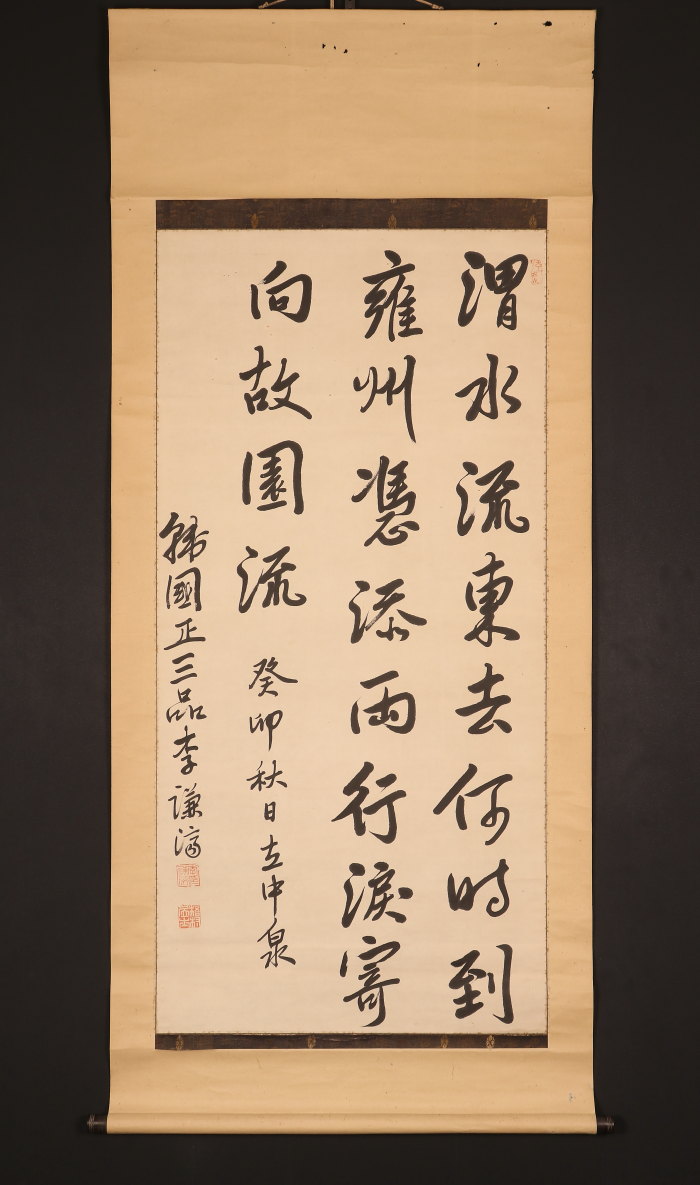 渭水流東去何時到
雍州憑添兩行淚寄
向故園流
癸卯秋日中泉
韓國正三品李謙濟